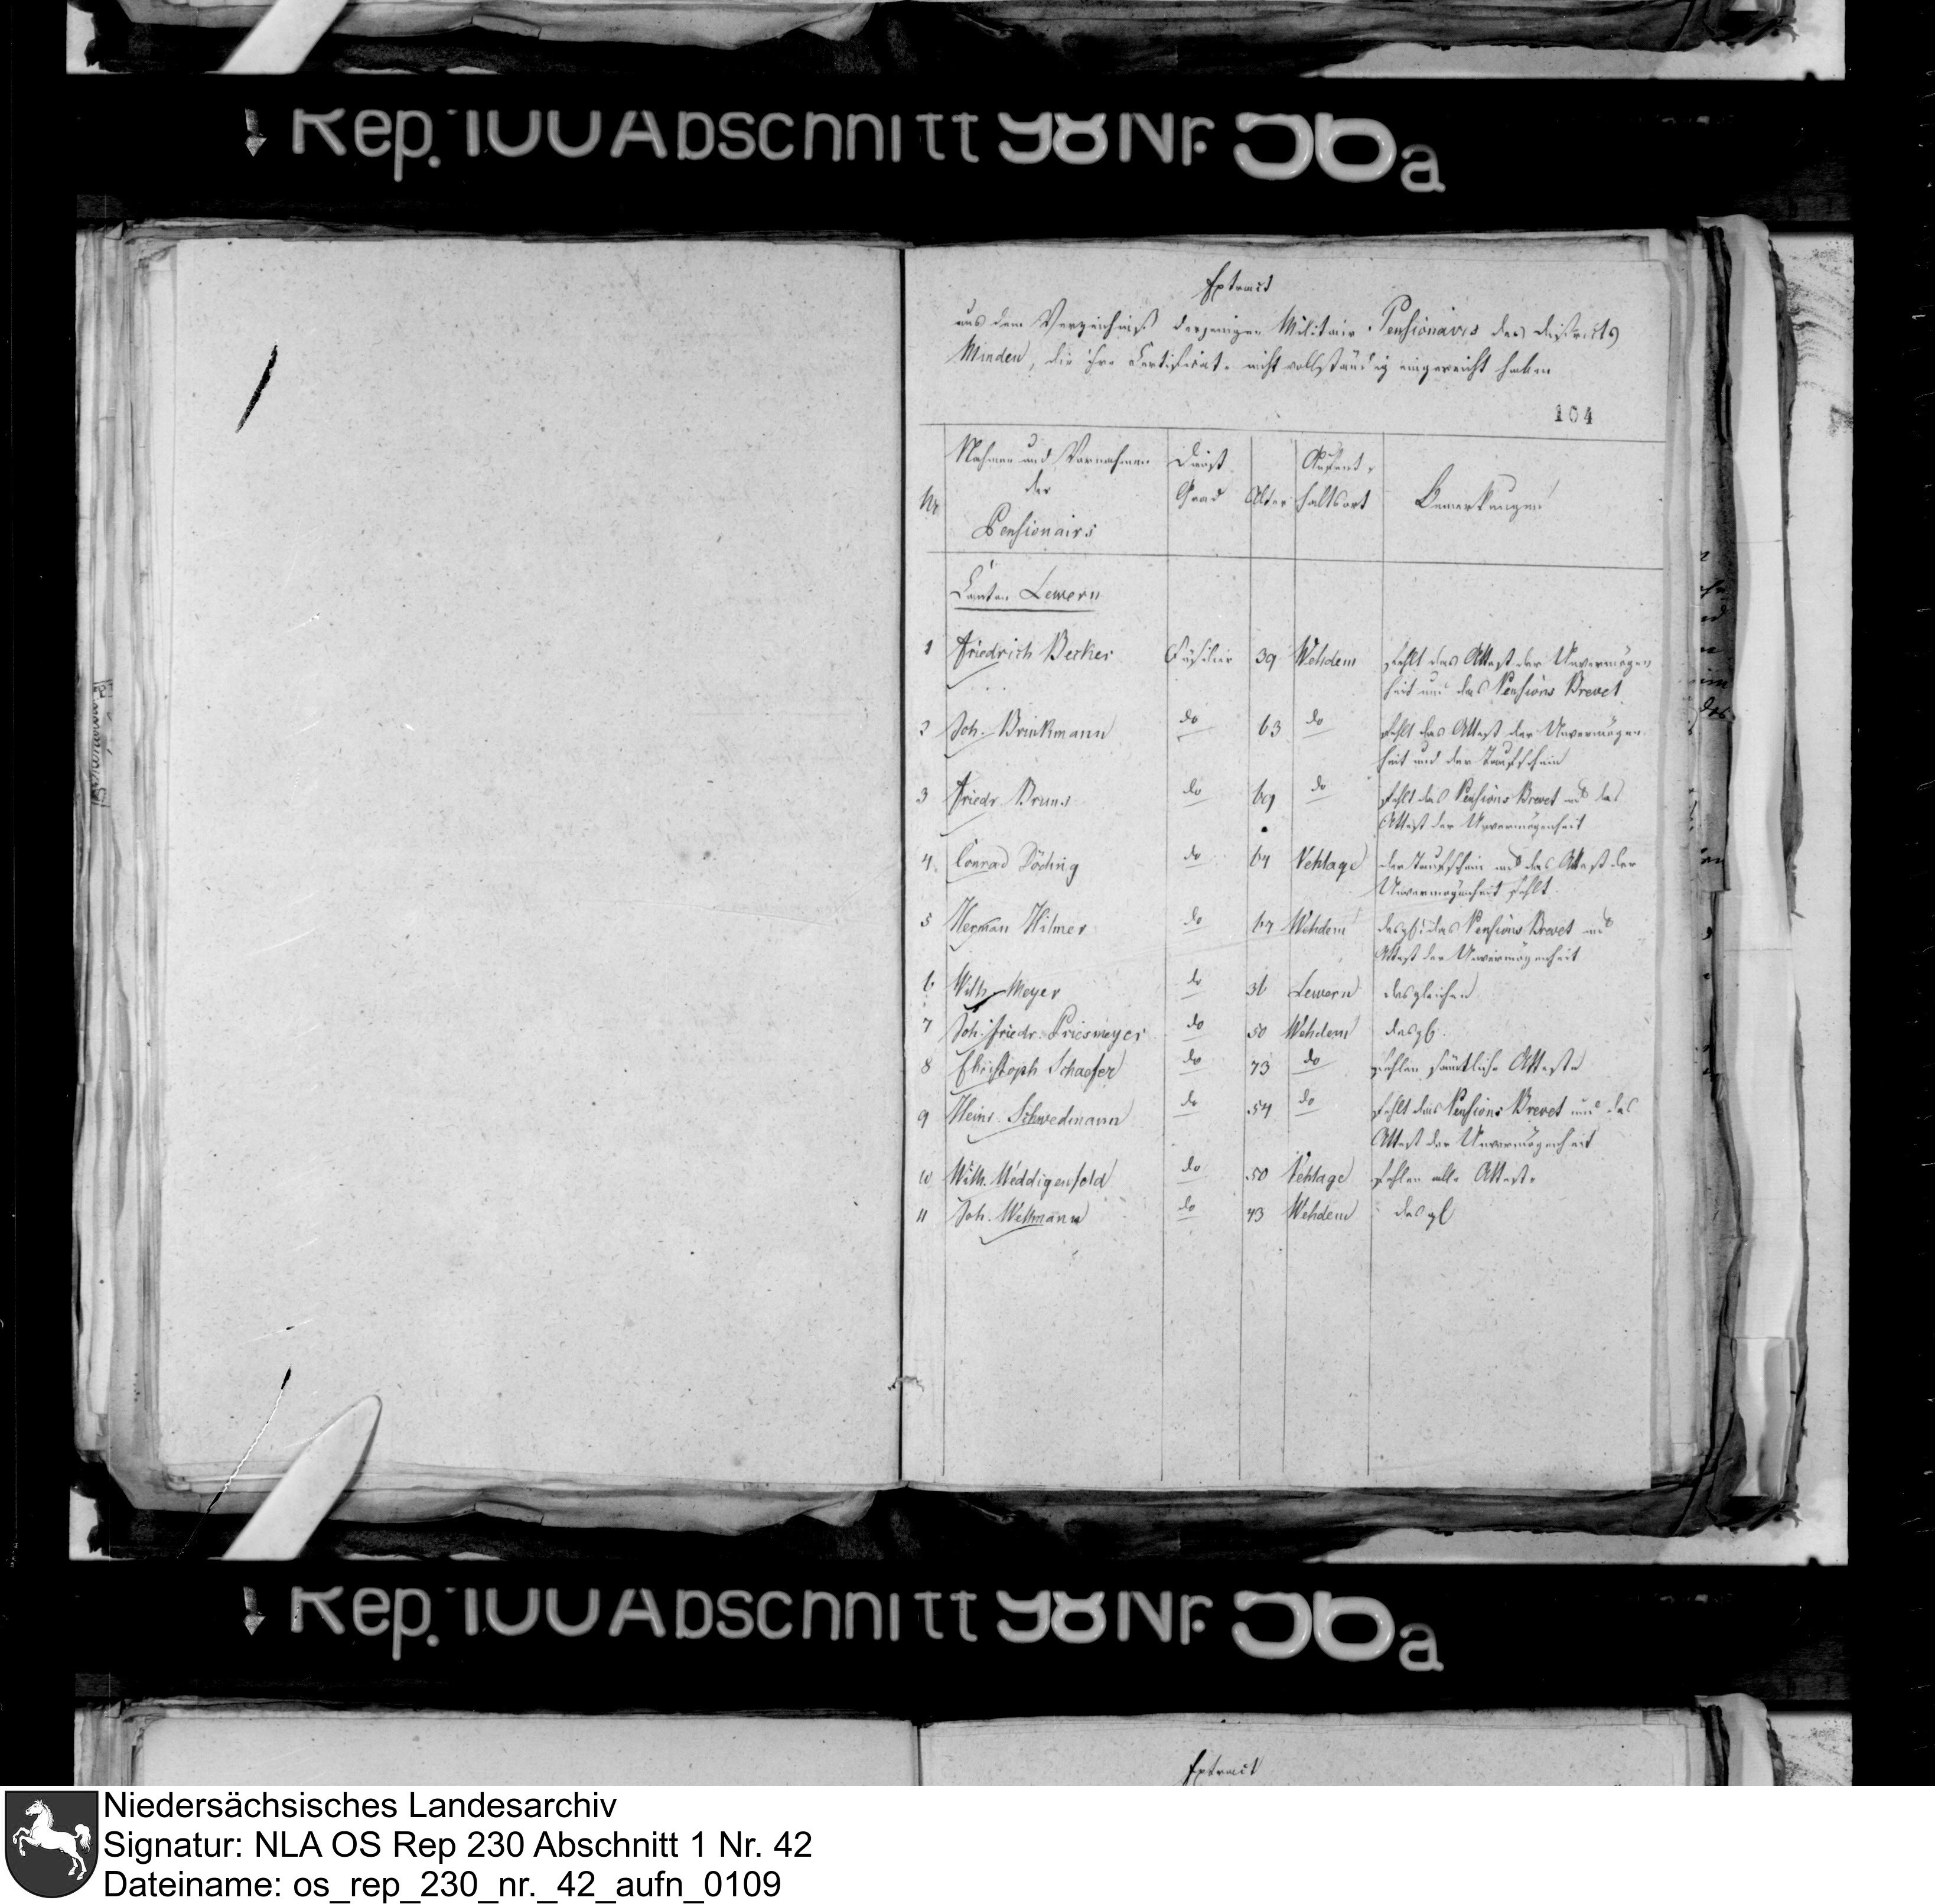 Rep. 100 Abschnitt 98 Nr. 56a
Extract
aus dem Verzeichniß derjenigen Militair-Pensionairs des Districts
Minden, die ihre Certificate nicht vollständig eingereicht haben
104
Nr
Nahmen und Vornahmen
der
Pensionairs
Dienst
Grad
Alter
Aufent-
haltsort
Bemerkungen
Canton Lewern
1 Friedrich Becker Füsilier 39 Wehdem fehlt das Attest der Unvermögen
heit und das Pensions Brevet
2 Joh. Brinkmann do 63 do fehlt das Attest der Unvermögen
heit und der Taufschein
3 Friedr. Bruns do 69 do fehlt das Pensions Brevet und das
Attest der Unvermögenheit
4. Conrad Döding do 64 Vehlage der Taufschein und das Attest der
Unvermögenheit fehlt.
5 Herman Hilmer do 67 Wehdem desgl: das Pensions Brevet und
Attest der Unvermögenheit
6 Wilh. Meyer do 36 Lewern desgleichen
7 Joh. Friedr. Priesmeyer do 50 Wehdem desgl.
8 Christoph Schaefer do 73 do fehlen sämtliche Atteste
9 Heinr. Schwedmann do 54 do fehlt das Pensions Brevet und das
Attest der Unvermögenheit
10 Wilh. Weddigenfeld do 50 Vehlage fehlen alle Atteste
11 Joh. Wellmann do 73 Wehdem desgl
Rep. 100 Abschnitt 98 Nr. 56a
Extract
Niedersächsisches Landesarchiv
Signatur: NLA OS Rep 230 Abschnitt 1 Nr. 42
Dateiname: os_rep_230_nr._42_aufn_0109